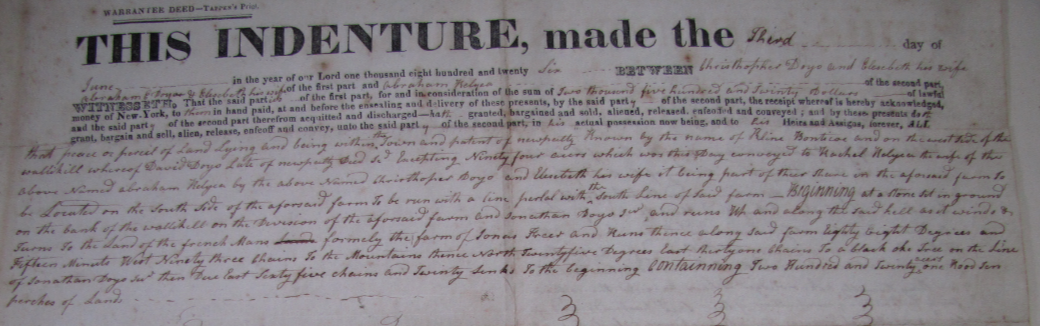 WARRANTEE DEED—
THIS INDENTURE, made the Third day of
June in the year of our Lord one thousand eight hundred and twenty Six BETWEEN Christhopher Doyo and Elisebeth his wife
of the first part and abraham Helyea of the second part,
WITNESSETH, That the said part of the first part, for and in consideration of the sum of Two thousand five hundred and Twenty Dollars lawful
money of New-York, to them in hand paid, at and before the ensealing and delivery of these presents, by the said party of the second part, the receipt whereof is hereby acknowledged,
and the said party of the second part therefrom acquitted and discharged—hath granted, bargained and sold, aliened, released, enfeoffed and conveyed; and by these presents doth
grant, bargain and sell, aliene, release, enfeoff and convey, unto the said party of the second part, in his actual possession now being, and to his Heirs and Assigns, forever, ALL
that peace or parcel of Land Lying and being within Town and patent of newpaltz Known by the name of and on the west side of the
wallkill whereof David Doyo Late of newpaltz Excepting Ninety four acres which was this Day conveyed to Rachel Helyea the wife of the
above Named abraham Helyea by the above Named Christhopher Doyo and Elisebeth his wife it being part of their share on the aforsaid farm to
be Located on the South Side of the aforsaid farm To be run with a line perlal with the South Line of said farm — Beginning at a Stone set in ground
on the bank of the wallkill on the Division of the aforsaid farm and Jonathan Doyo and runs up and along the said kill as it winds &
Turns To the Land of the french Mans formely the farm of Jonas Freer and Runs thence along said farm Eighty Eight Degrees and
Fifteen Minuts West Ninety three Chains To the Mountains thence North Twentyfive Degrees East thirtyone Chains To a black oke Tree on the Line
of Jonathan Doyo then Due East Sixtyfive chains and Twenty Links To the beginning Containning Two Hundred and Twenty one acers
perches of Land